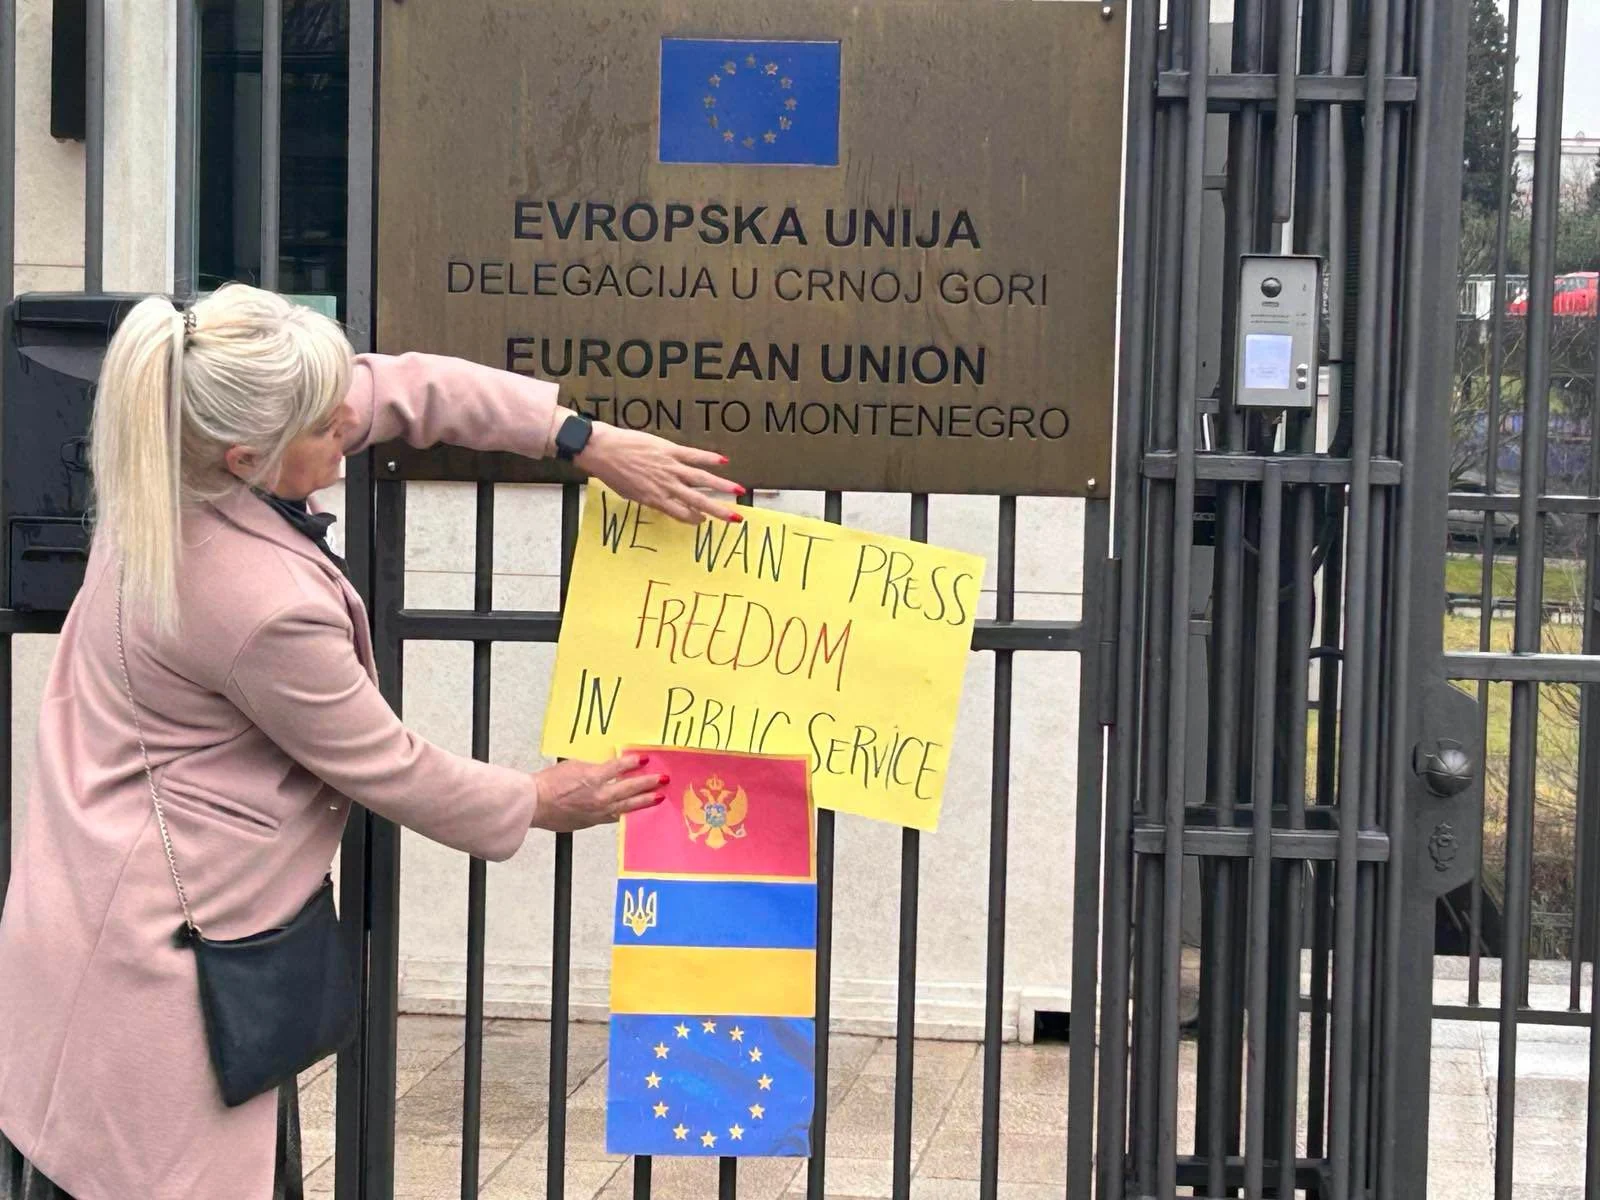 EVROPSKA UNIJA
DELEGACIJA U CRNOJ GORI
EUROPEAN UNION
ATION TO MONTENEGRO
WE WANT PRESS
FREEDOM
IN PUBLIC SERVICE